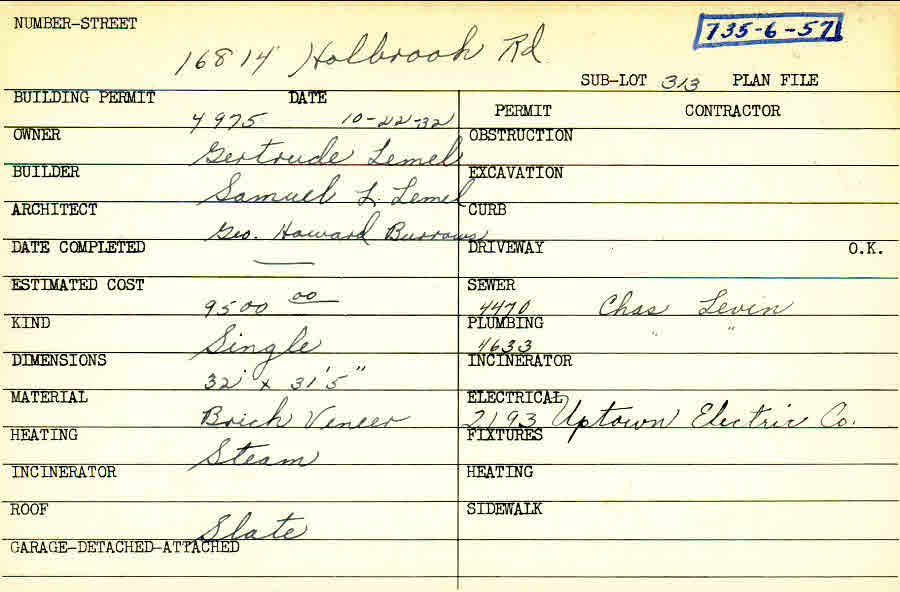 NUMBER-STREET
735-6-57
16814 Holbrook Rd
SUB-LOT 313 PLAN FILE
BUILDING PERMIT DATE
4975 10-22-32
PERMIT CONTRACTOR
OWNER
Gertrude Lemel
OBSTRUCTION
BUILDER
Samuel L. Lemel
EXCAVATION
ARCHITECT
Geo. Howard Burrows
CURB
DATE COMPLETED
DRIVEWAY O.K.
ESTIMATED COST
9500 00
SEWER
4470 Chas Levin
KIND
Single
PLUMBING
4633 " "
DIMENSIONS
32' x 31'5"
INCINERATOR
MATERIAL
Brick Veneer
ELECTRICAL
2193 Uptown Electric Co.
HEATING
Steam
FIXTURES
INCINERATOR
HEATING
ROOF
Slate
SIDEWALK
GARAGE-DETACHED-ATTACHED